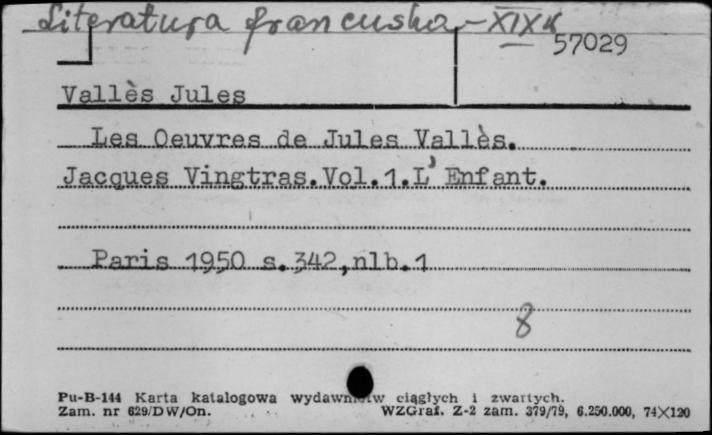 Literatura francuska - XIX w
57029
Vallès Jules
Les Oeuvres de Jules Vallès.
Jacques Vingtras.Vol.1.L'Enfant.
Paris 1950 s.342,nlb.1
8
Pu-B-144 Karta katalogowa wydawnictw ciągłych i zwartych.
Zam. nr 629/DW/On. WZGraf. Z-2 zam. 379/79, 6.250.000, 74X120